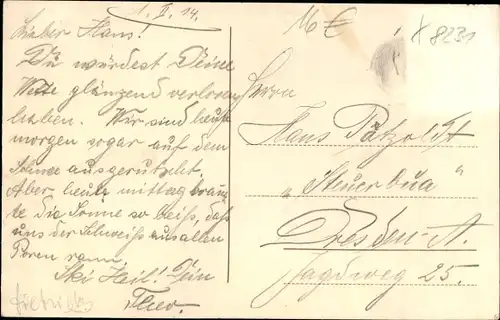 1. II. 14.
Lieber Hans!
Du würdest Deine
Wette glänzend verloren
haben. Wir sind heute
morgen sogar auf dem
Schnee ausgerutscht.
Aber heute mittag brann
te die Sonne so heiß, daß
uns der Schweiß aus allen
Poren rann.
Ski Heil! Dein
Theo.
16 €
X 8231
Herrn
Hans Pätzoldt
"Steuerbua"
Dresden-A.
Jagdweg 25.